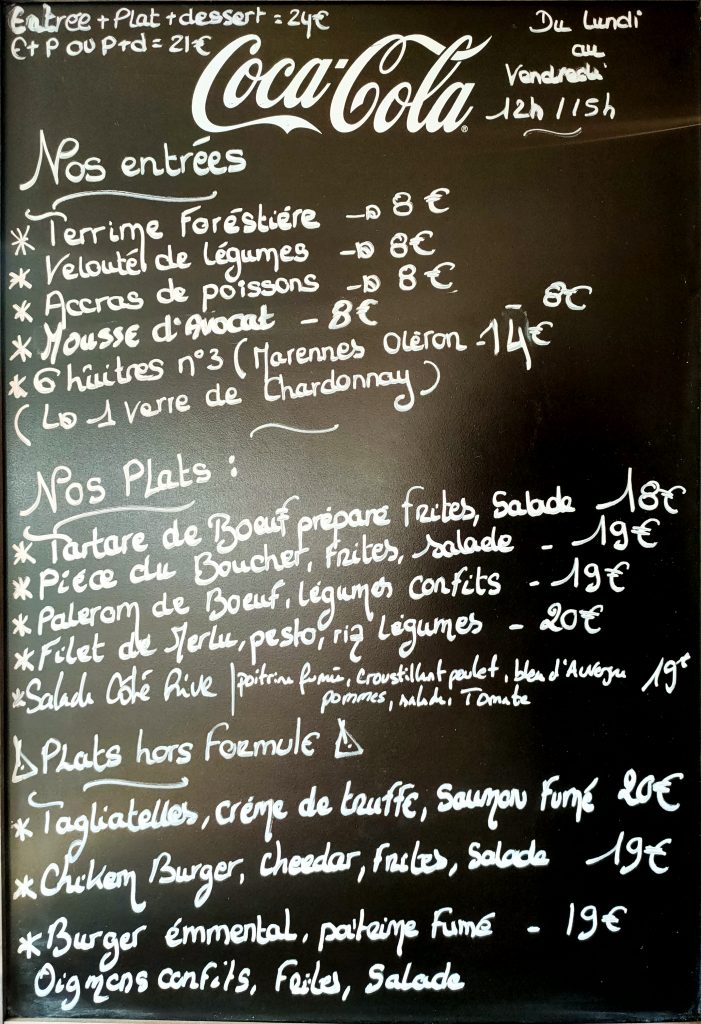 Entrée + Plat + dessert = 24€
E + P ou P + d = 21€
Du Lundi
au
Vendredi
12h / 15h
Coca-Cola
Nos entrées
* Terrime Foréstiére → 8€
* Velouté de légumes → 8€
* Accras de poissons → 8€
* Mousse d'Avocat - 8€
- 8€
* 6 hûitres n°3 (Marennes Oléron - 14€
(↳ 1 verre de Chardonnay)
Nos Plats :
* Tartare de Boeuf préparé frites, Salade 18€
* Piéce du Boucher, frites, salade - 19€
* Palerom de Boeuf, légumes confits - 19€
* Filet de Merlu, pesto, riz légumes - 20€
* Salade Côté Rive | poitrine fumée, croustillant poulet, bleu d'Auvergne 19€
pommes, salade, Tomate
⚠ Plats hors Formule ⚠
* Tagliatelles, créme de truffe, Saumon Fumé 20€
* Chikem Burger, cheedar, frites, Salade 19€
* Burger émmental, poitrine Fumé - 19€
Oignons confits, Frites, Salade